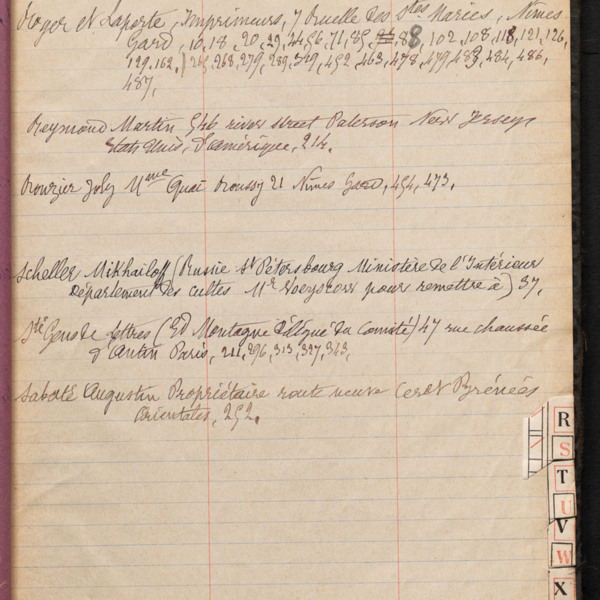 Roger et Laporte, Imprimeurs, 7 Ruelle des Stes Maries, Nîmes
Gard, 10, 18, 20, 29, 44, 56, 71, 85, 88, 102, 108, 118, 121, 126,
129, 162, 265, 268, 279, 289, 329, 452, 463, 478, 479, 483, 484, 486,
487,
Reymond Martin 546 river street Paterson New Jersey
Etats Unis, d'amérique, 214.
Rouzier Joly Mme Quai Roussy 21 Nîmes Gard, 454, 473,
Scheller Mikhailoff (Russie St Pétersbourg Ministère de l'Intérieur
Département des cultes Mr pour remettre à) 37,
Sté Gens de lettres (Ed. Montagne délégué du Comité) 47 rue chaussée
d'Antin Paris, 211, 296, 313, 327, 343,
Sabaté Augustin Propriétaire route neuve Ceret Pyrénées
Orientales, 252,
R
S
T
U
V
W
X